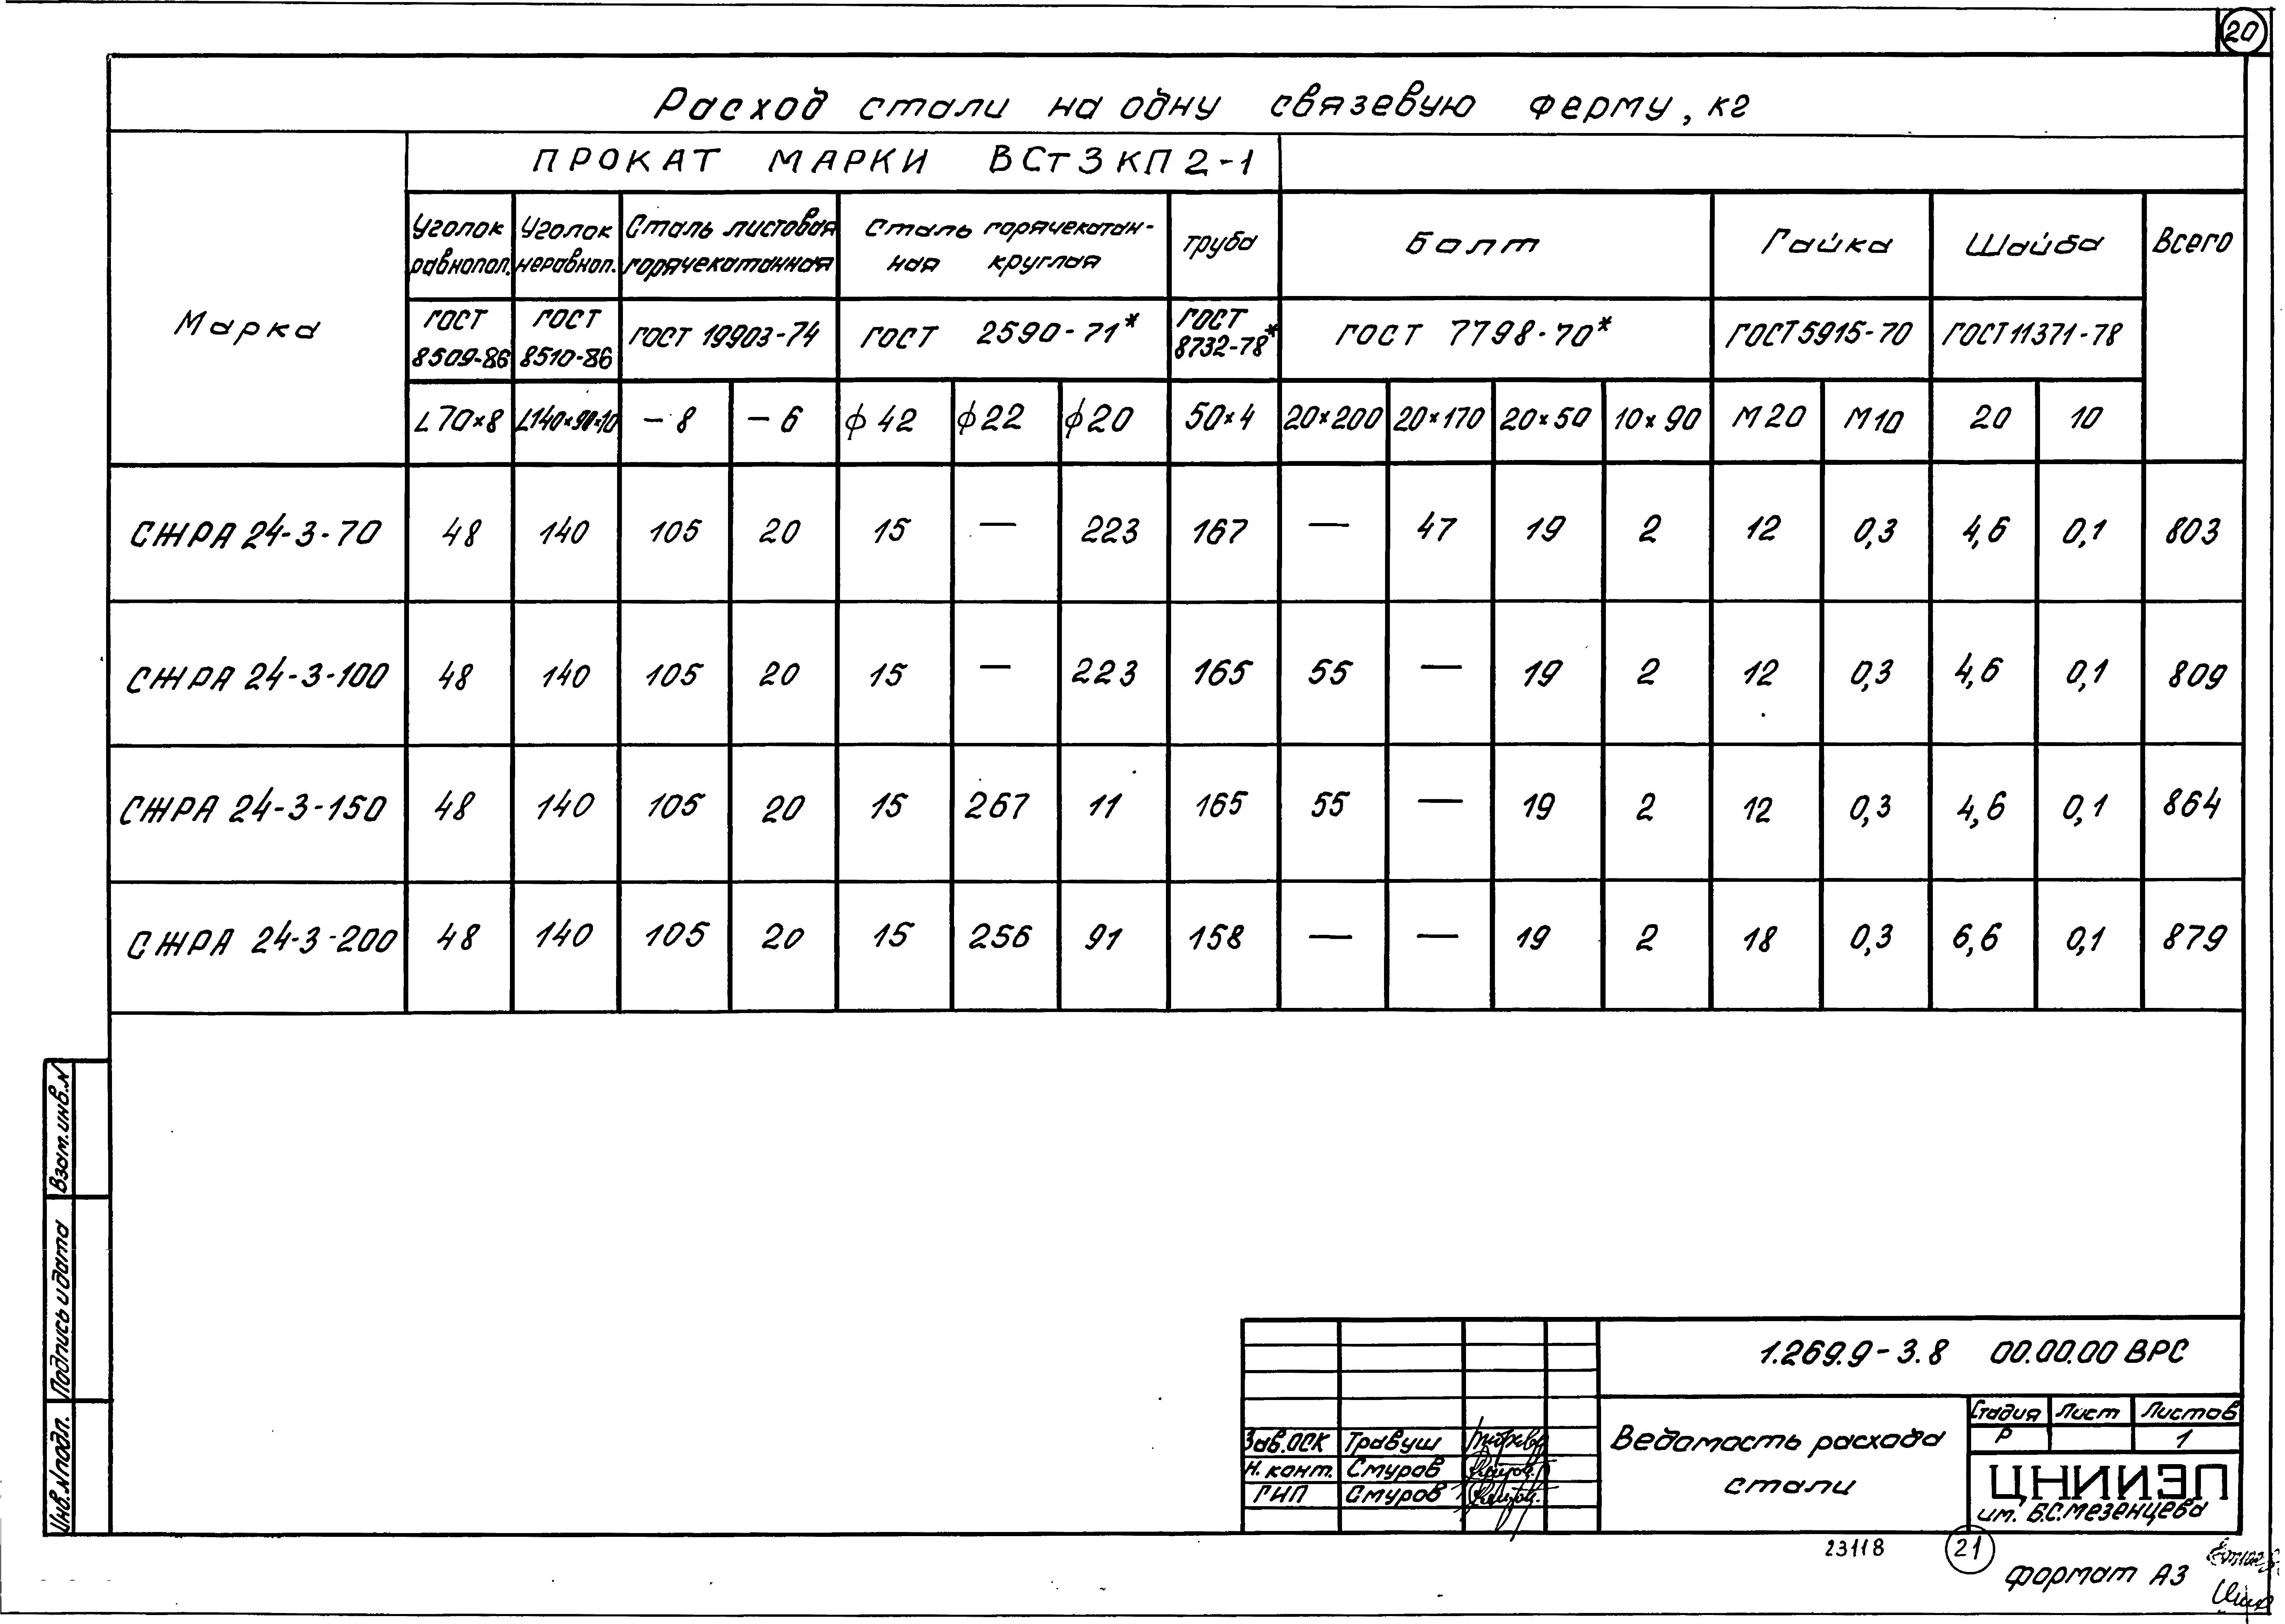 20
Расход стали на одну связевую ферму, кг
Марка
ПРОКАТ МАРКИ ВСт3КП2-1
Уголок равнопол.
Уголок неравноп.
Сталь листовая горячекатанная
Сталь горячекатан-
ная круглая
труба
Болт
Гайка
Шайба
Всего
ГОСТ 8509-86
ГОСТ 8510-86
ГОСТ 19903-74
ГОСТ 2590-71*
ГОСТ 8732-78*
ГОСТ 7798-70*
ГОСТ 5915-70
ГОСТ 11371-78
L70×8 L140×90×10 -8 -6 ϕ42 ϕ22 ϕ20 50×4 20×200 20×170 20×50 10×90 М20 М10 20 10
СЖРА 24-3-70 48 140 105 20 15 — 223 167 — 47 19 2 12 0,3 4,6 0,1 803
СЖРА 24-3-100 48 140 105 20 15 — 223 165 55 — 19 2 12 0,3 4,6 0,1 809
СЖРА 24-3-150 48 140 105 20 15 267 11 165 55 — 19 2 12 0,3 4,6 0,1 864
СЖРА 24-3-200 48 140 105 20 15 256 91 158 — — 19 2 18 0,3 6,6 0,1 879
Взам.инв.N
Подпись и дата
Инв.N подл.
1.269.9-3.8 00.00.00 ВРС
Зав.ОСК Травуш
Н. конт. Смуров
ГИП Смуров
Ведомость расхода
стали
Стадия Лист Листов
Р 1
ЦНИИЭП
им. Б.С.Мезенцева
23118 21
формат А3